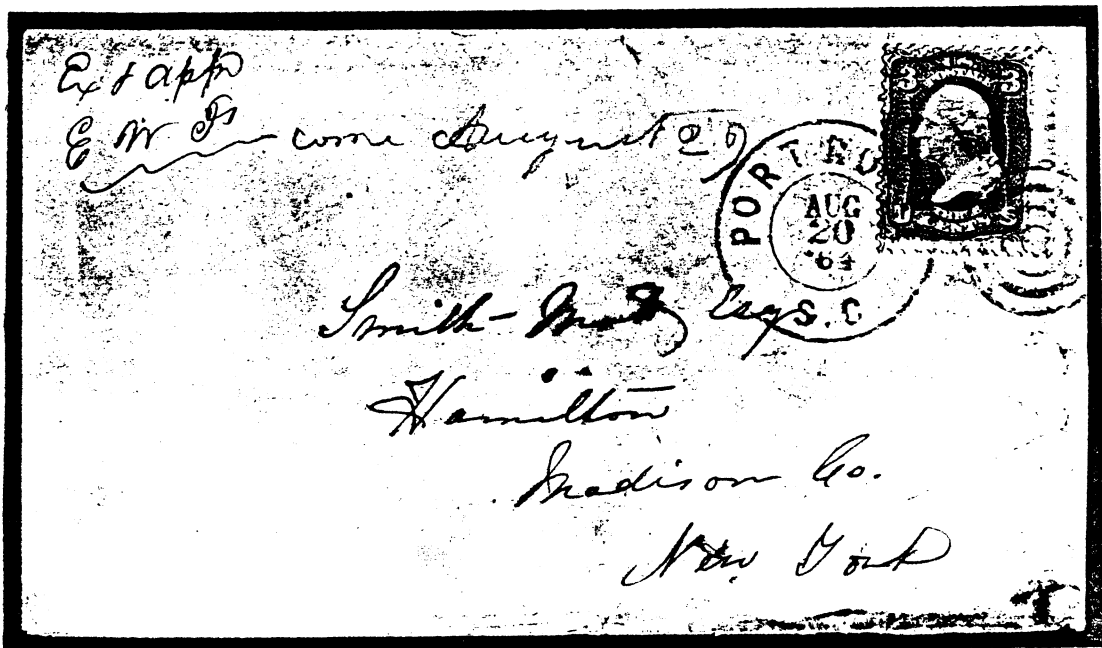 Ex & app
E W Fs come August 26
PORT RO
AUG
20
'64
S. C.
Smith Esq
Hamilton
Madison Co.
New York